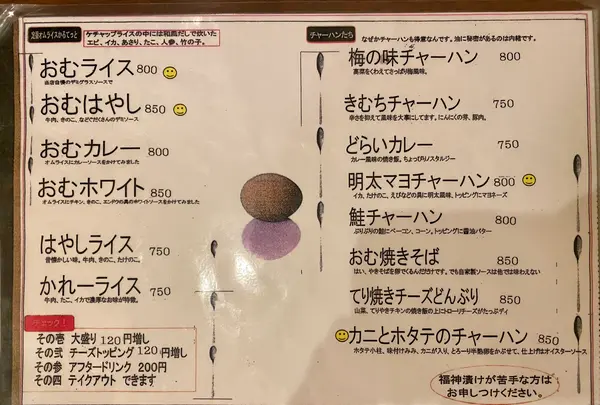 定番オムライスかるてっと
ケチャップライスの中には和風だしで炊いた
エビ、イカ、あさり、たこ、人参、竹の子。
おむライス 800
当店自慢のデミグラスソースで
おむはやし 850
牛肉、きのこ、などでだくさんのデミソース
おむカレー 800
オムライスにカレーソースをかけてみました
おむホワイト 850
オムライスにチキン、きのこ、エンドウの具のホワイトソースをかけてみました
はやしライス 750
昔懐かしい味。牛肉、きのこ、たけのこ。
かれーライス 750
牛肉、たこ、イカで濃厚なお味が特徴。
チェック！
その壱 大盛り 120円増し
その弐 チーズトッピング 120円増し
その参 アフタードリンク 200円
その四 テイクアウト できます
チャーハンたち
なぜかチャーハンも得意なんです。油に秘密があるのは内緒です。
梅の味チャーハン 800
高菜をくわえてさっぱり梅風味。
きむちチャーハン 750
辛さを抑えて風味を大事にしてます。にんにくの芽、豚肉。
どらいカレー 750
カレー風味の焼き飯。ちょっぴりノスタルジー
明太マヨチャーハン 800
イカ、たけのこ、えびなどの具に明太風味、トッピングにマヨネーズ
鮭チャーハン 800
ぷりぷりの鮭にベーコン、コーン、トッピングに醤油バター
おむ焼きそば 850
はい、やきそばを卵でくるんだだけです。でも自家製ソースは他では味わえない
てり焼きチーズどんぶり 850
山菜、てりやきチキンの焼き飯の上にトローリチーズがたっぷディ
カニとホタテのチャーハン 850
ホタテ小柱、味付けきみみ、カニが入り、とろーり半熟卵をかぶせて、仕上げはオイスターソース
福神漬けが苦手な方は
お申しつけください。